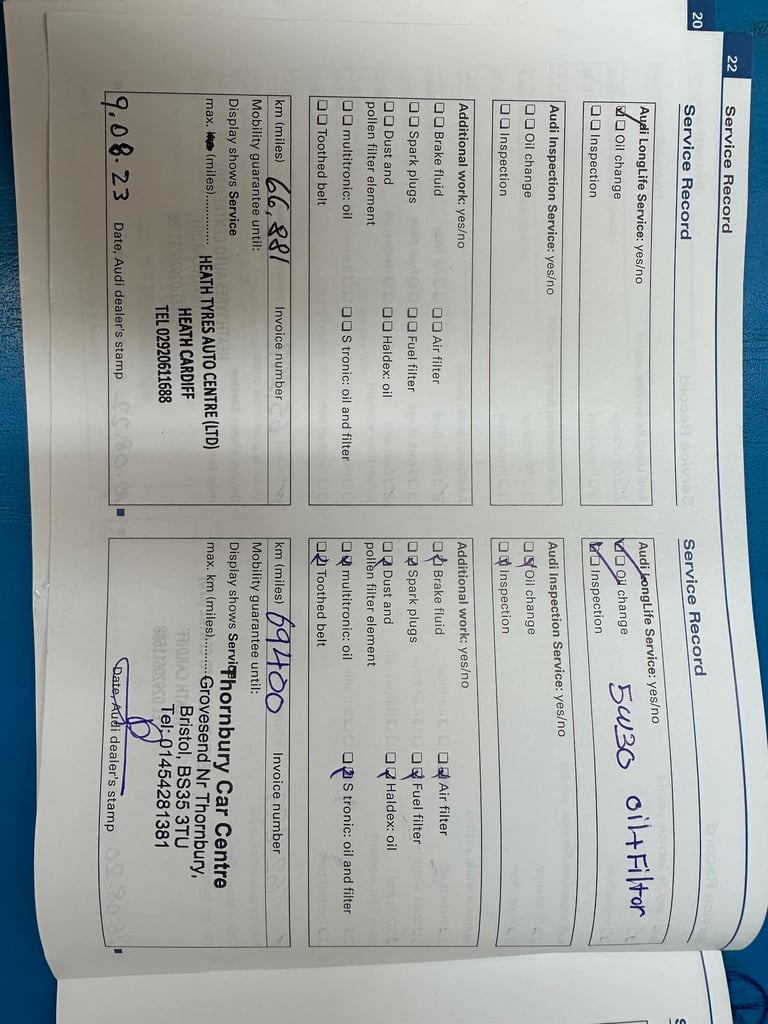 20
22
Service Record
Service Record
Audi LongLife Service: yes/no
Oil change
Inspection
Audi Inspection Service: yes/no
Oil change
Inspection
Additional work: yes/no
Brake fluid Air filter
Spark plugs Fuel filter
Dust and Haldex: oil
pollen filter element
multitronic: oil S tronic: oil and filter
Toothed belt
km (miles) 66,881 Invoice number
Mobility guarantee until:
Display shows Service
max. km (miles)............
HEATH TYRES AUTO CENTRE (LTD)
HEATH CARDIFF
TEL 02920611688
9.08.23 Date, Audi dealer's stamp
Service Record
Audi LongLife Service: yes/no
Oil change
Inspection
5W30 oil + Filter
Audi Inspection Service: yes/no
Oil change
Inspection
Additional work: yes/no
Brake fluid Air filter
Spark plugs Fuel filter
Dust and Haldex: oil
pollen filter element
multitronic: oil S tronic: oil and filter
Toothed belt
km (miles) 69400 Invoice number
Mobility guarantee until:
Display shows Service
max. km (miles)..........
Thornbury Car Centre
Grovesend Nr Thornbury,
Bristol, BS35 3TU
Tel: 01454281381
Date, Audi dealer's stamp